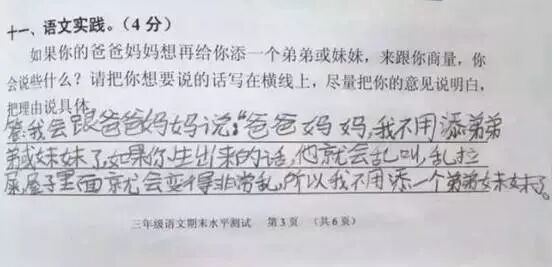 十一、语文实践。(4分)
如果你的爸爸妈妈想再给你添一个弟弟或妹妹，来跟你商量，你
会说些什么？请把你想要说的话写在横线上，尽量把你的意见说明白，
把理由说具体。
答：我会跟爸爸妈妈说：“爸爸妈妈，我不用添弟弟
弟或妹妹了，如果你生出来的话，他就会乱叫，乱拉
屎，屋子里面就会变得非常乱，所以我不用添一个弟弟妹妹了。
三年级语文期末水平测试 第3页 （共6页）